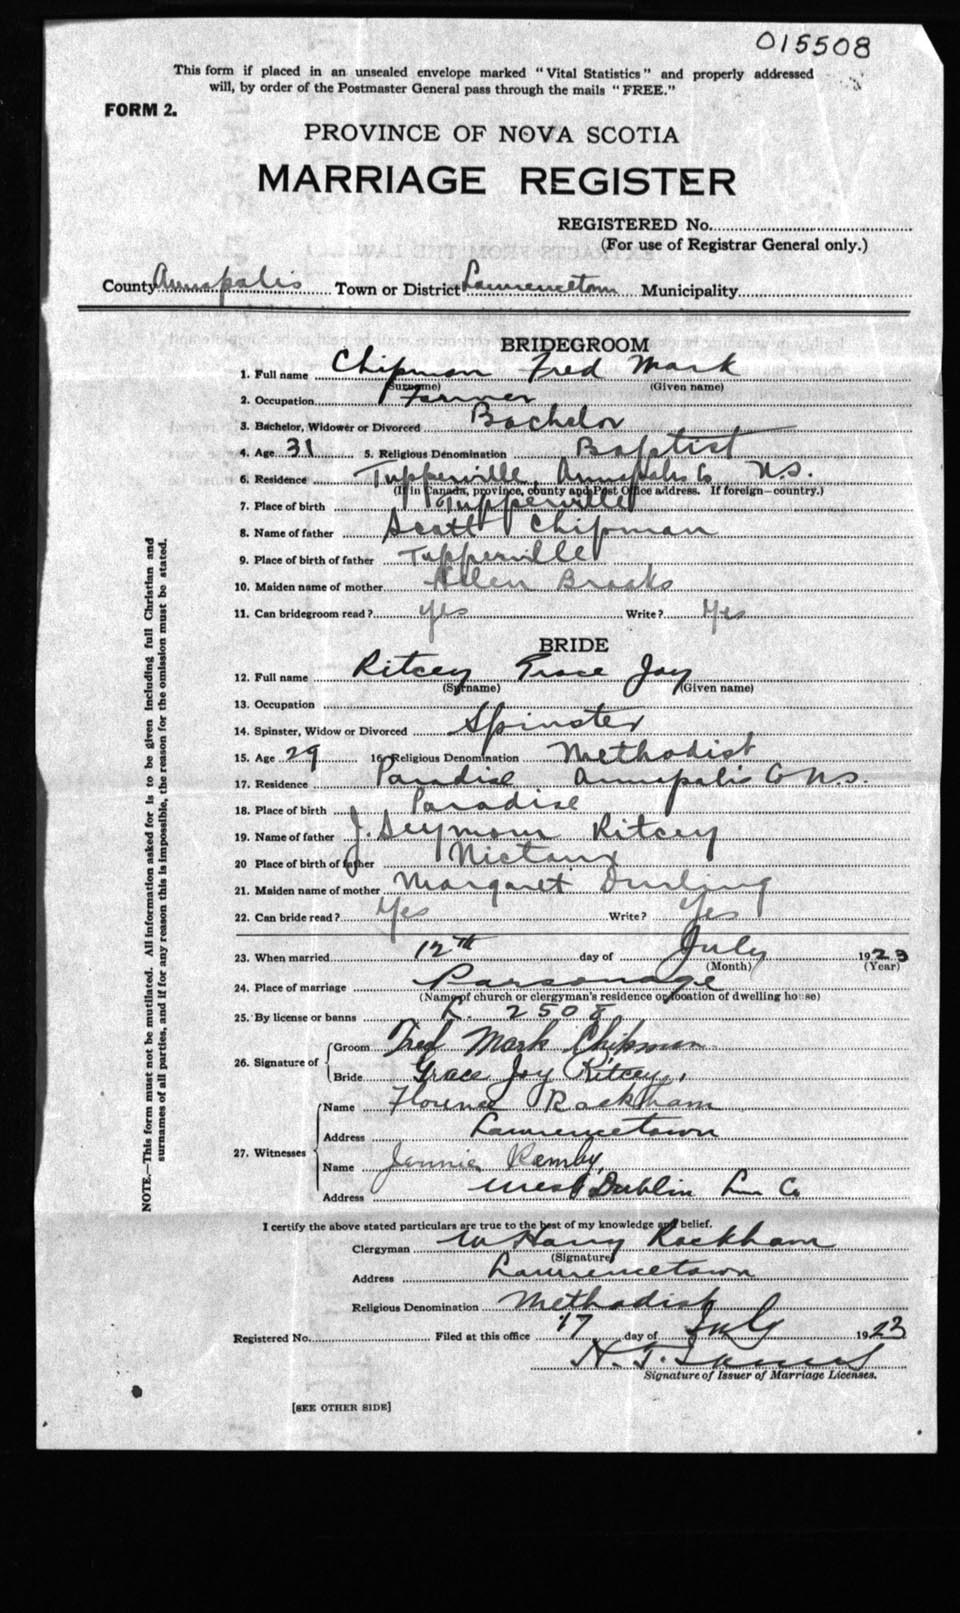 015508
This form if placed in an unsealed envelope marked "Vital Statistics" and properly addressed
will, by order of the Postmaster General pass through the mails "FREE."
FORM 2.
PROVINCE OF NOVA SCOTIA
MARRIAGE REGISTER
REGISTERED No.
(For use of Registrar General only.)
County Annapolis Town or District Lawrencetown Municipality
BRIDEGROOM
1. Full name Chipman Fred Mark
(Surname) (Given name)
2. Occupation Farmer
3. Bachelor, Widower or Divorced Bachelor
4. Age 31 5. Religious Denomination Baptist
6. Residence Tupperville, Annapolis Co N.S.
(If in Canada, province, county and Post Office address. If foreign—country.)
7. Place of birth Tupperville
8. Name of father Scott Chipman
9. Place of birth of father Tupperville
10. Maiden name of mother Helen Brooks
11. Can bridegroom read? yes Write? Yes
BRIDE
12. Full name Ritcey Grace Joy
(Surname) (Given name)
13. Occupation
14. Spinster, Widow or Divorced Spinster
15. Age 29 16. Religious Denomination Methodist
17. Residence Paradise Annapolis Co N.S.
18. Place of birth Paradise
19. Name of father J. Seymour Ritcey
20 Place of birth of father Nictaux
21. Maiden name of mother Margaret Durling
22. Can bride read? Yes Write? Yes
23. When married 12th day of July 1923
(Month) (Year)
24. Place of marriage Parsonage
(Name of church or clergyman's residence or location of dwelling house)
25. By license or banns L. 2508
26. Signature of Groom Fred Mark Chipman
Bride Grace Joy Ritcey.
27. Witnesses Name Florence Rackham
Address Lawrencetown
Name Jennie
Address West Dublin Lun Co
I certify the above stated particulars are true to the best of my knowledge and belief.
Clergyman W Harry Rackham
(Signature)
Address Lawrencetown
Religious Denomination Methodist
Registered No. Filed at this office 17 day of July 1923
H. T.
Signature of Issuer of Marriage Licenses.
[SEE OTHER SIDE]
NOTE.—This form must not be mutilated. All information asked for is to be given including full Christian and
surnames of all parties, and if for any reason this is impossible, the reason for the omission must be stated.